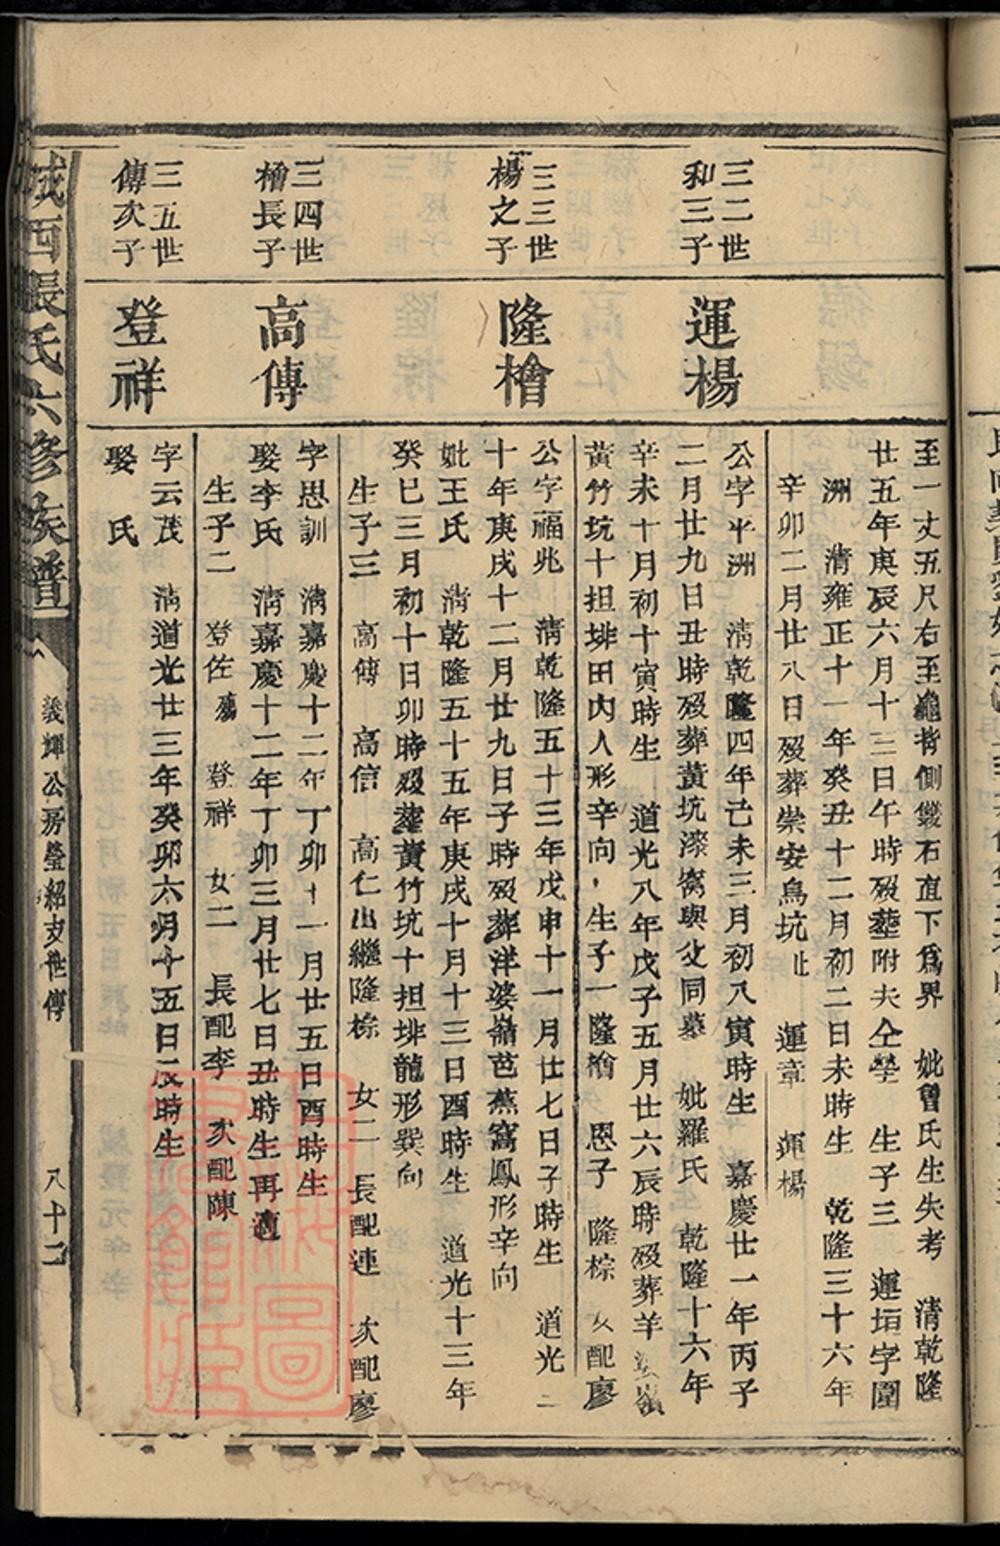 至一丈五尺右至龜背側鑱石直下爲界　妣曾氏生失考　清乾隆
廿五年庚辰六月十三日午時歿葬附夫仝塋　生子三　運垣字圍
洲　清雍正十一年癸丑十二月初二日未時生　乾隆三十六年
辛卯二月廿八日歿葬崇安烏坑止　運章　運楊
三二世
和三子
運楊
公字平洲　清乾隆四年己未三月初八寅時生　嘉慶廿一年丙子
二月廿九日丑時歿葬黃坑漈窩與父同墓　妣羅氏　乾隆十六年
辛未十月初十寅時生　道光八年戊子五月廿六辰時歿葬羊婆嶺
黃竹坑十担埂田內人形辛向　生子一隆檜　恩子　隆棕　女配廖
三三世
楊之子
隆檜
公字福兆　清乾隆五十三年戊申十一月廿七日子時生　道光二
十年庚戌十二月廿九日子時歿葬洋婆嶺芭蕉窩鳳形辛向
妣王氏　清乾隆五十五年庚戌十月十三日酉時生　道光十三年
癸巳三月初十日卯時歿葬黃竹坑十担埂龍形巽向
生子三　高傳　高信　高仁出繼隆棕　女二　長配連　次配廖
三四世
檜長子
高傳
字思訓　清嘉慶十二年丁卯十一月廿五日酉時生
娶李氏　清嘉慶十二年丁卯三月廿七日丑時生再適
生子二　登佐殤　登祥　女二　長配李　次配陳
三五世
傳次子
登祥
字云茂　清道光廿三年癸卯六月十五日辰時生
娶　氏
城西張氏六修族譜
義輝公房瑩紹支世傳
八十二